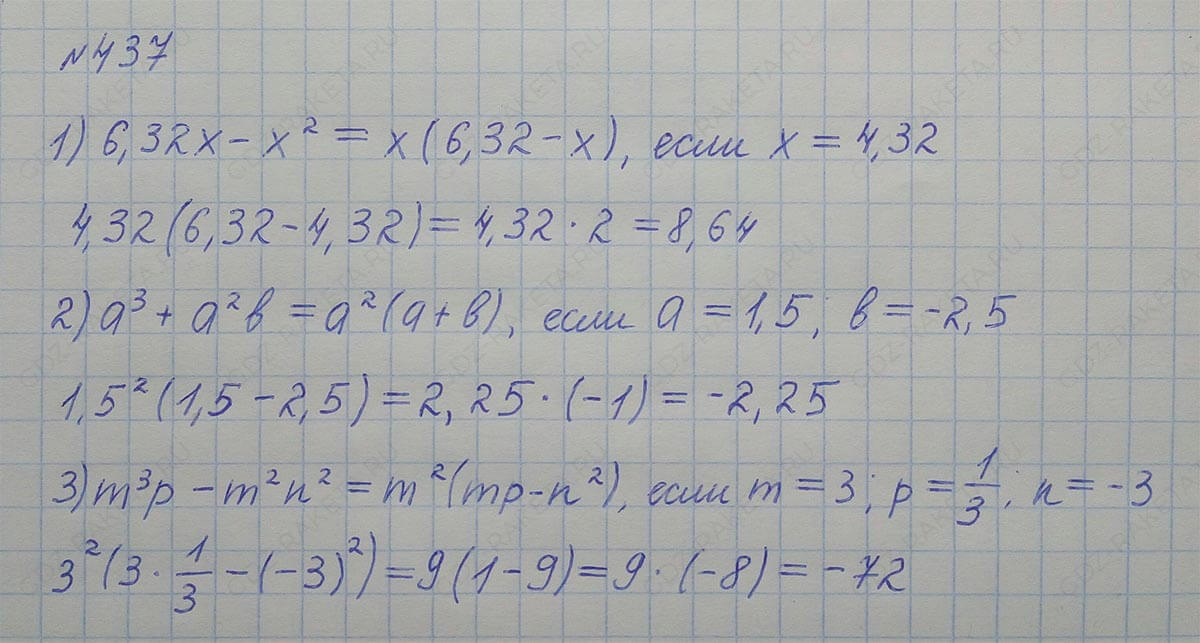 №437
1) 6,32x - x² = x(6,32 - x), если x = 4,32
4,32(6,32 - 4,32) = 4,32 · 2 = 8,64
2) a³ + a²в = a²(a + в), если a = 1,5; в = -2,5
1,5²(1,5 - 2,5) = 2,25 · (-1) = -2,25
3) m³p - m²n² = m²(mp - n²), если m = 3; p = 1/3; n = -3
3²(3 · 1/3 - (-3)²) = 9(1 - 9) = 9 · (-8) = -72
GDZ-RAKETA.RU